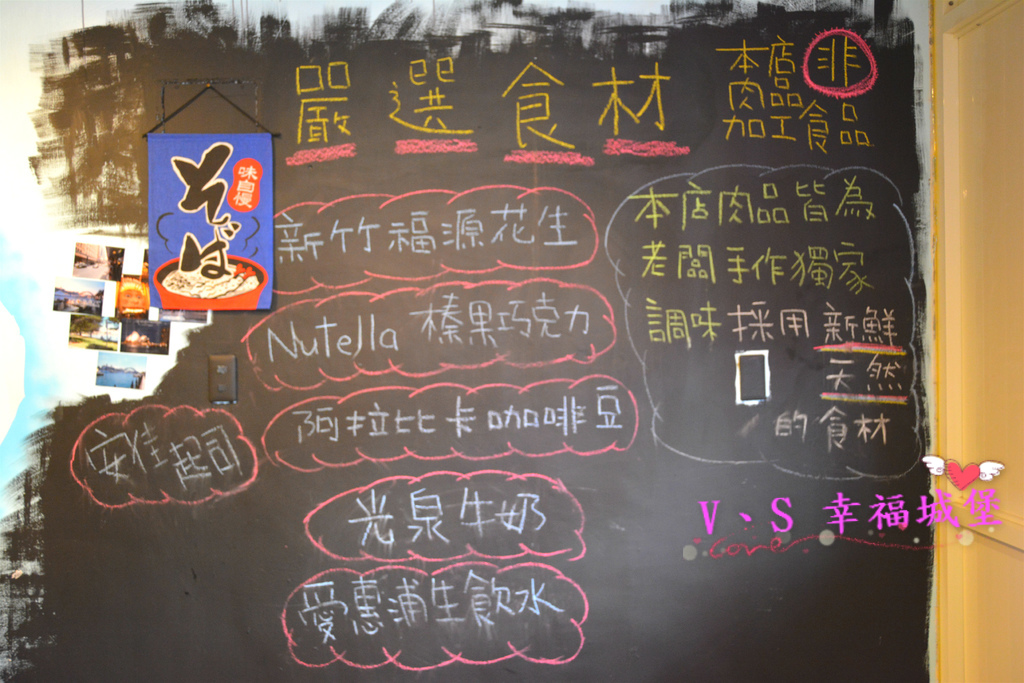 嚴選食材
本店 非
肉品
加工食品
味自慢
そば
新竹福源花生
Nutella 榛果巧克力
阿拉比卡咖啡豆
安佳起司
光泉牛奶
愛惠浦生飲水
本店肉品皆為
老闆手作獨家
調味採用新鮮
天然
的食材
V、S 幸福城堡
Love